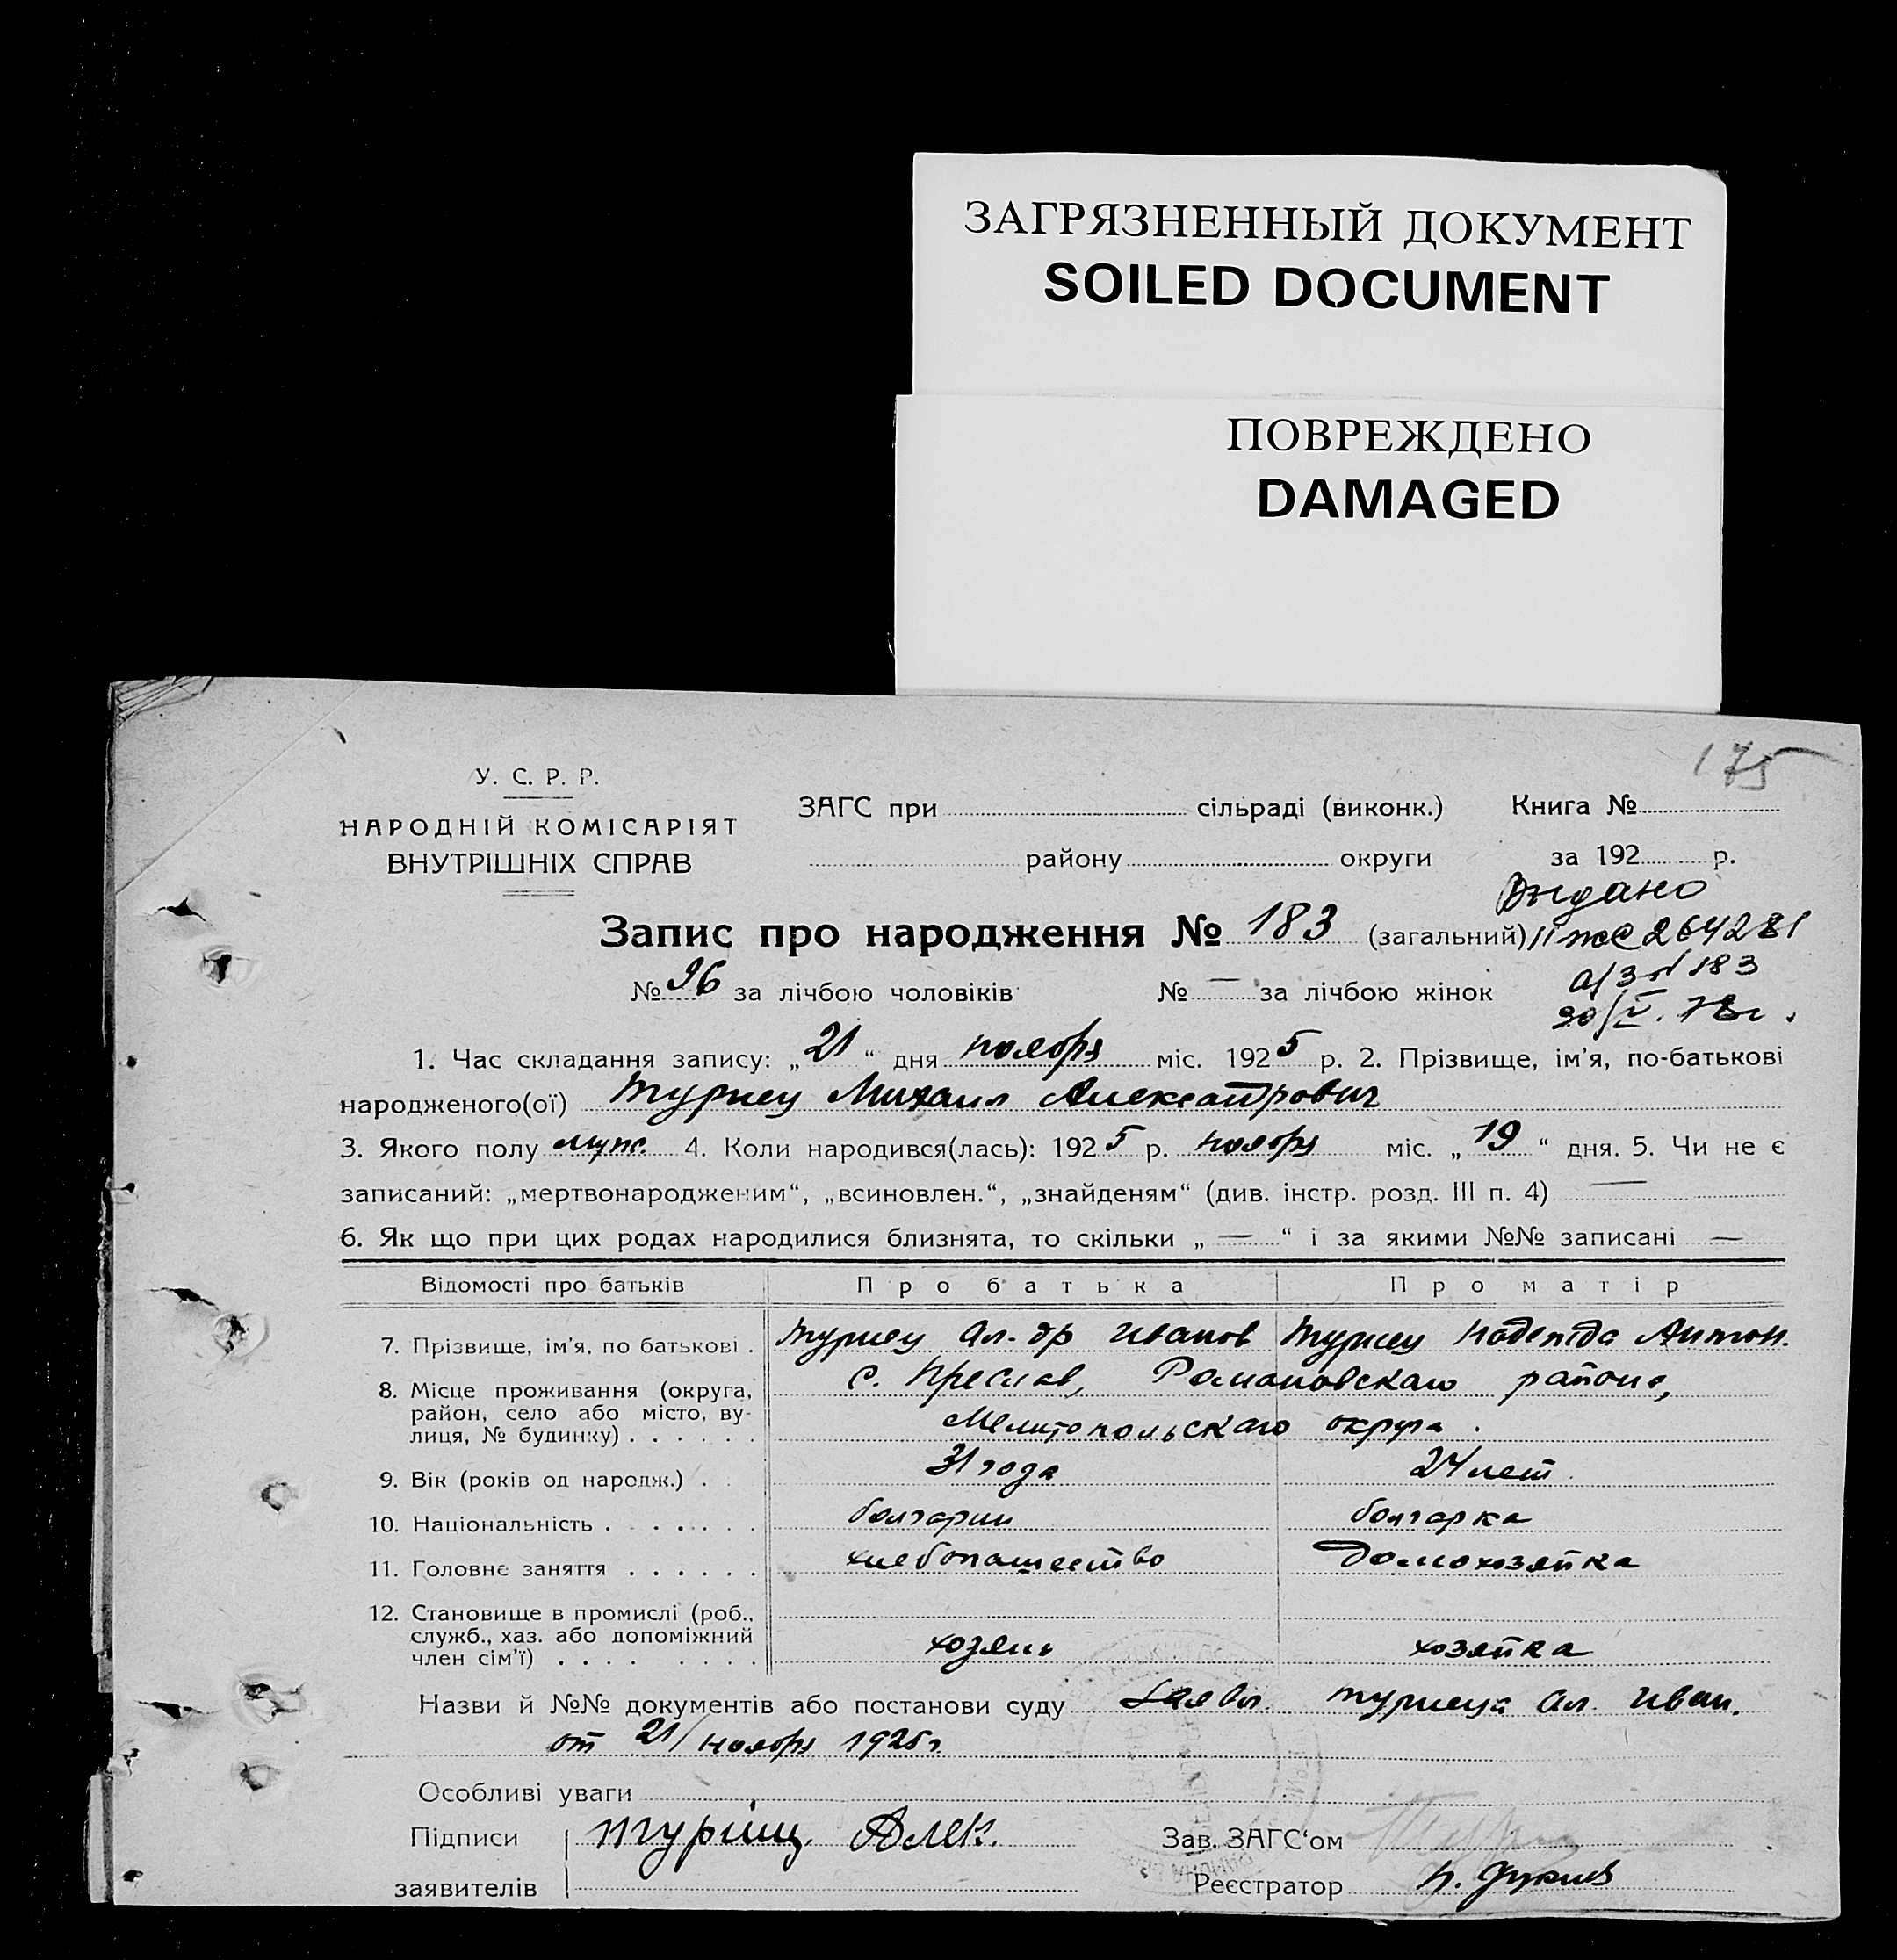 ЗАГРЯЗНЕННЫЙ ДОКУМЕНТ
SOILED DOCUMENT
ПОВРЕЖДЕНО
DAMAGED
175
У. С. Р. Р.
НАРОДНІЙ КОМІСАРІЯТ
ВНУТРІШНІХ СПРАВ
ЗАГС при сільраді (виконк.) Книга №
району округи за 192 р.
Выдано
Запис про народження № 183 (загальний) II 264281
№ 96 за лічбою чоловіків № — за лічбою жінок а/з № 183
30/V.
1. Час складання запису: „21“ дня ноября міс. 1925 р. 2. Прізвище, ім'я, по-батькові
народженого(ої) Турлеу Михаил Александрович
3. Якого полу муж. 4. Коли народився(лась): 1925 р. ноября міс. „19“ дня. 5. Чи не є
записаний: „мертвонародженим“, „всиновлен.“, „знайденям“ (див. інстр. розд. III п. 4) —
6. Як що при цих родах народилися близнята, то скільки „—“ і за якими №№ записані —
Відомості про батьків Про батька Про матір
7. Прізвище, ім'я, по батькові . Ал-др Иванов Надежда Антон.
8. Місце проживання (округа, район, село або місто, вулиця, № будинку) . . . . . . с. Преслав, Романовскаго района,
Мелитопольскаго округа.
9. Вік (років од народж.) . . 31 года 24 лет
10. Національність . . . . . . болгарин болгарка
11. Головне заняття . . . . . . хлебопашество домохозяйка
12. Становище в промислі (роб.,
служб., хаз. або допоміжний
член сім'ї) . . . . . . . . хозяин хозяйка
Назви й №№ документів або постанови суду Заявл. Ал. Иван.
от 21/ноября 1925 г.
Особливі уваги
Підписи Алек. Зав. ЗАГС'ом
заявителів Реєстратор